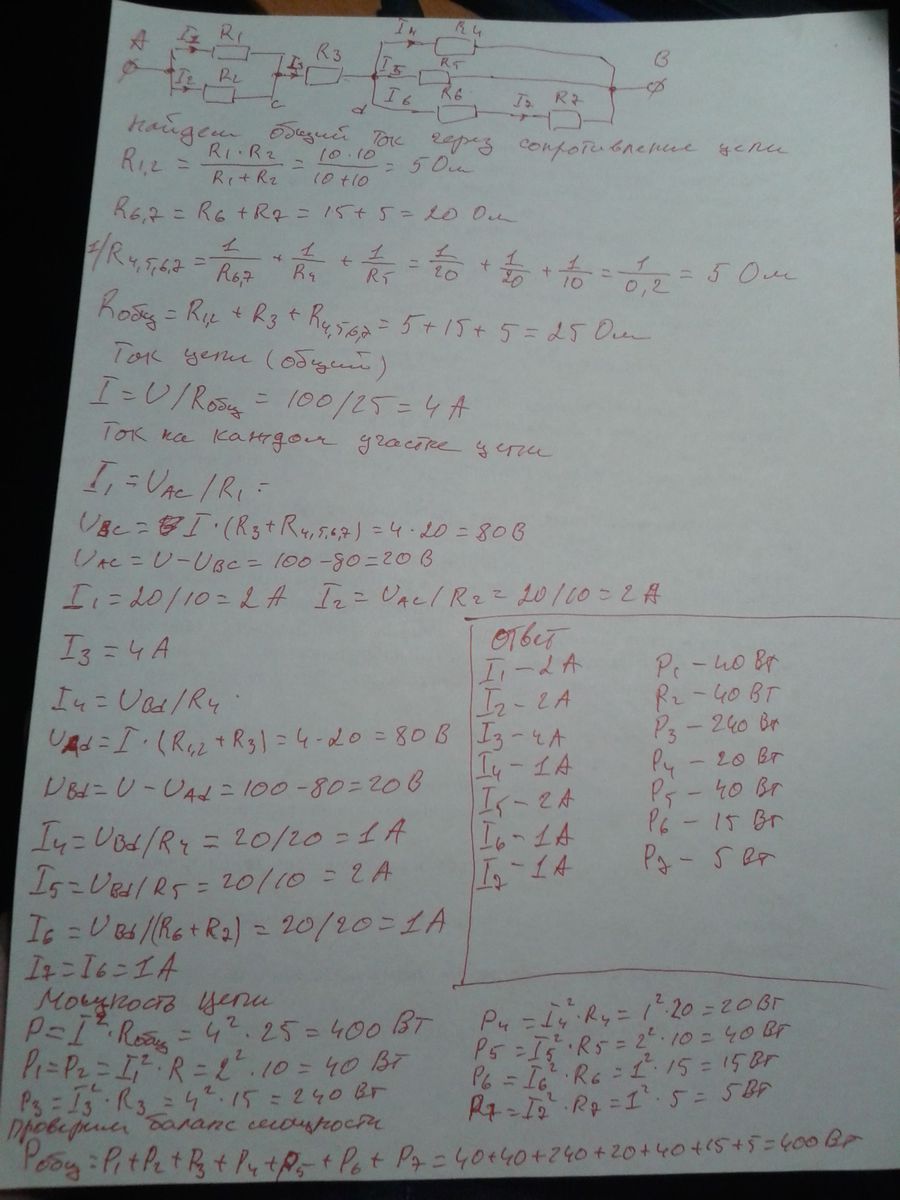 A I1 R1 I2 R2 c I3 R3 d I4 R4 I5 R5 I6 R6 I7 R7 B
Найдем общий ток через сопротивление цепи
R1,2 = R1·R2/R1+R2 = 10·10/10+10 = 5 Ом
R6,7 = R6 + R7 = 15 + 5 = 20 Ом
1/R4,5,6,7 = 1/R6,7 + 1/R4 + 1/R5 = 1/20 + 1/20 + 1/10 = 1/0,2 = 5 Ом
Rобщ = R1,2 + R3 + R4,5,6,7 = 5 + 15 + 5 = 25 Ом
Ток цепи (общий)
I = U/Rобщ = 100/25 = 4 А
Ток на каждом участке цепи
I1 = UAC/R1 =
UBC = I·(R3+R4,5,6,7) = 4·20 = 80 В
UAC = U - UBC = 100 - 80 = 20 В
I1 = 20/10 = 2 А I2 = UAC/R2 = 20/10 = 2 А
I3 = 4 А
I4 = UBd/R4
UAd = I·(R1,2 + R3) = 4·20 = 80 В
UBd = U - UAd = 100 - 80 = 20 В
I4 = UBd/R4 = 20/20 = 1 А
I5 = UBd/R5 = 20/10 = 2 А
I6 = UBd/(R6+R7) = 20/20 = 1 А
I7 = I6 = 1 А
Ответ
I1 - 2 А P1 - 40 Вт
I2 - 2 А P2 - 40 Вт
I3 - 4 А P3 - 240 Вт
I4 - 1 А P4 - 20 Вт
I5 - 2 А P5 - 40 Вт
I6 - 1 А P6 - 15 Вт
I7 - 1 А P7 - 5 Вт
Мощность цепи
P = I²·Rобщ = 4²·25 = 400 Вт
P1 = P2 = I1²·R = 2²·10 = 40 Вт
P3 = I3²·R3 = 4²·15 = 240 Вт
P4 = I4²·R4 = 1²·20 = 20 Вт
P5 = I5²·R5 = 2²·10 = 40 Вт
P6 = I6²·R6 = 1²·15 = 15 Вт
P7 = I7²·R7 = 1²·5 = 5 Вт
Проверим баланс мощности
Pобщ = P1+P2+P3+P4+P5+P6+P7 = 40+40+240+20+40+15+5 = 400 Вт